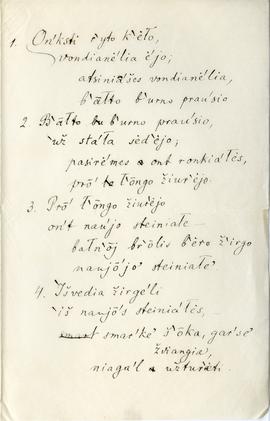 1. Onksti ryto kėło,
vondianėlia ėjo;
atsiniašes vondianėlia,
bałto burno praušio
2. Bałto burno praušio,
už stała sėdėjo;
pasirėmes ont ronkialės,
prō łōngo žiurėjo.
3. Prō łōngo žiurėjo
ont naujo steiniałe —
balnōj brōlis bėro žirgo
naujōjo steiniałe
4. Išvedia žirgėli
iš naujōs steiniałės, —
smarkė šōka, garsė
žviangia,
niagal užturėti.